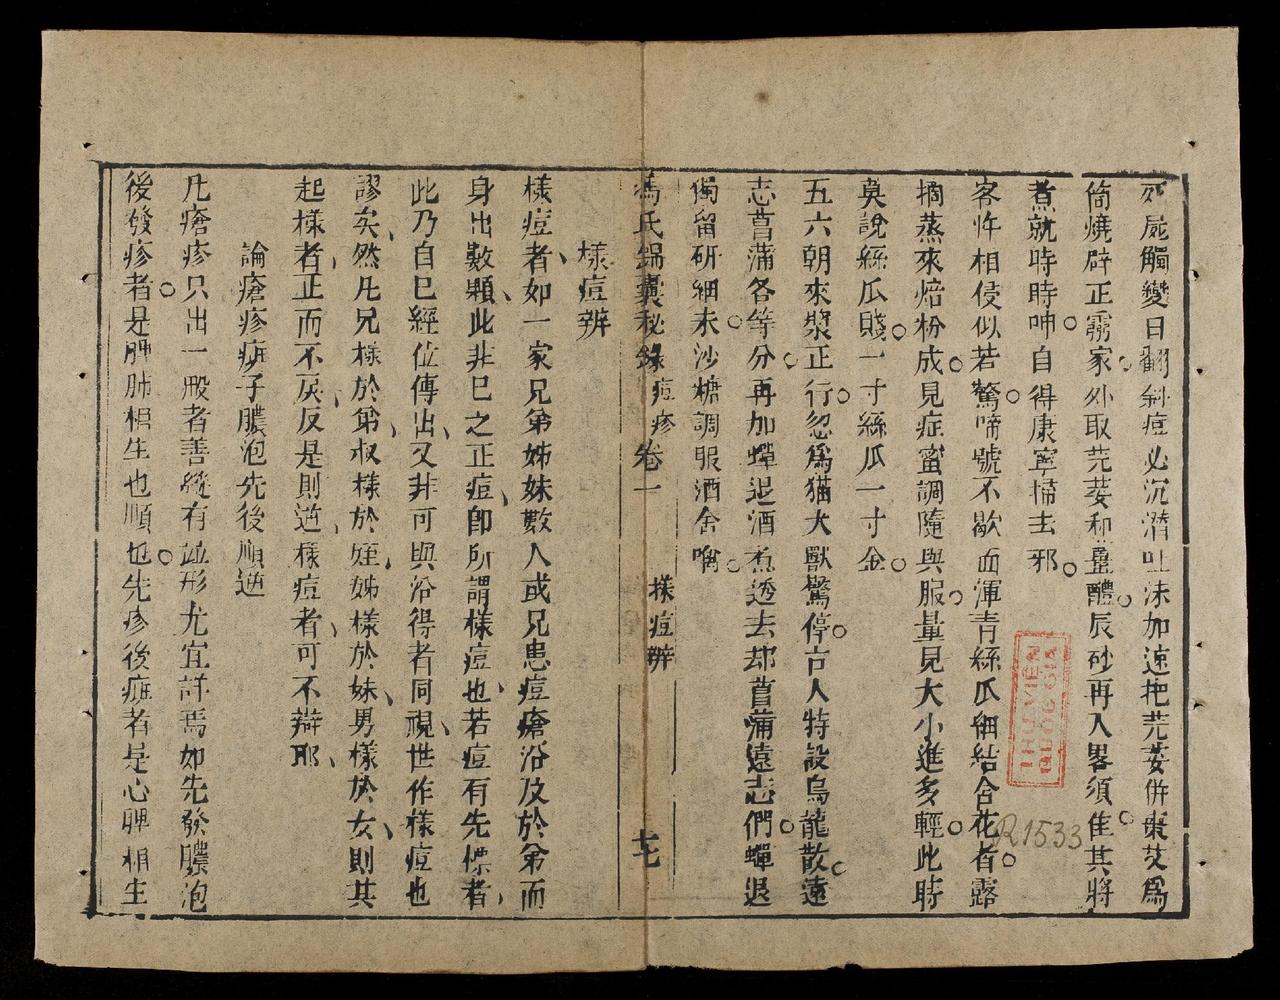 屍觸變日翻斜痘必沉潛吐沫加速把芫荽併棗艾爲
筒燒辟正霧家外取芫荽和醴辰砂再入畧須隹其將
煮就時時呻自得康寧掃去邪
客忤相侵似若驚啼號不歇面渾青絲瓜網結含花者露
摘蒸來焙粉成見症蜜調隨與服量見大小進多輕此時
莫說絲瓜賤一寸絲瓜一寸金
五六朝來漿正行忽爲猫犬獸驚停古人特設烏龍散遠
志菖蒲各等分再加蟬退酒煮透去却菖蒲遠志們蟬退
獨留研細末沙糖調服酒舍噙
馮氏錦囊秘錄 痘疹 卷一 樣痘辨 十七
樣痘辨
樣痘者如一家兄弟姊妹數人或兄患痘瘡沿及於弟而
身出數顆此非巳之正痘卽所謂樣痘也若痘有先標者
此乃自巳經位傳出又非可與沿得者同視世作樣痘也
謬矣然凡兄樣於弟叔樣於姪姊樣於妹男樣於女則其
起樣者正而不戾反是則逆樣痘者可不辯耶
論瘡疹痲子膿泡先後順逆
凡瘡疹只出一般者善纔有並形尤宜詳焉如先發膿泡
後發疹者是脾肺相生也順也先疹後痲者是心脾相生
THƯ VIEN
QUOC GIA
R1533